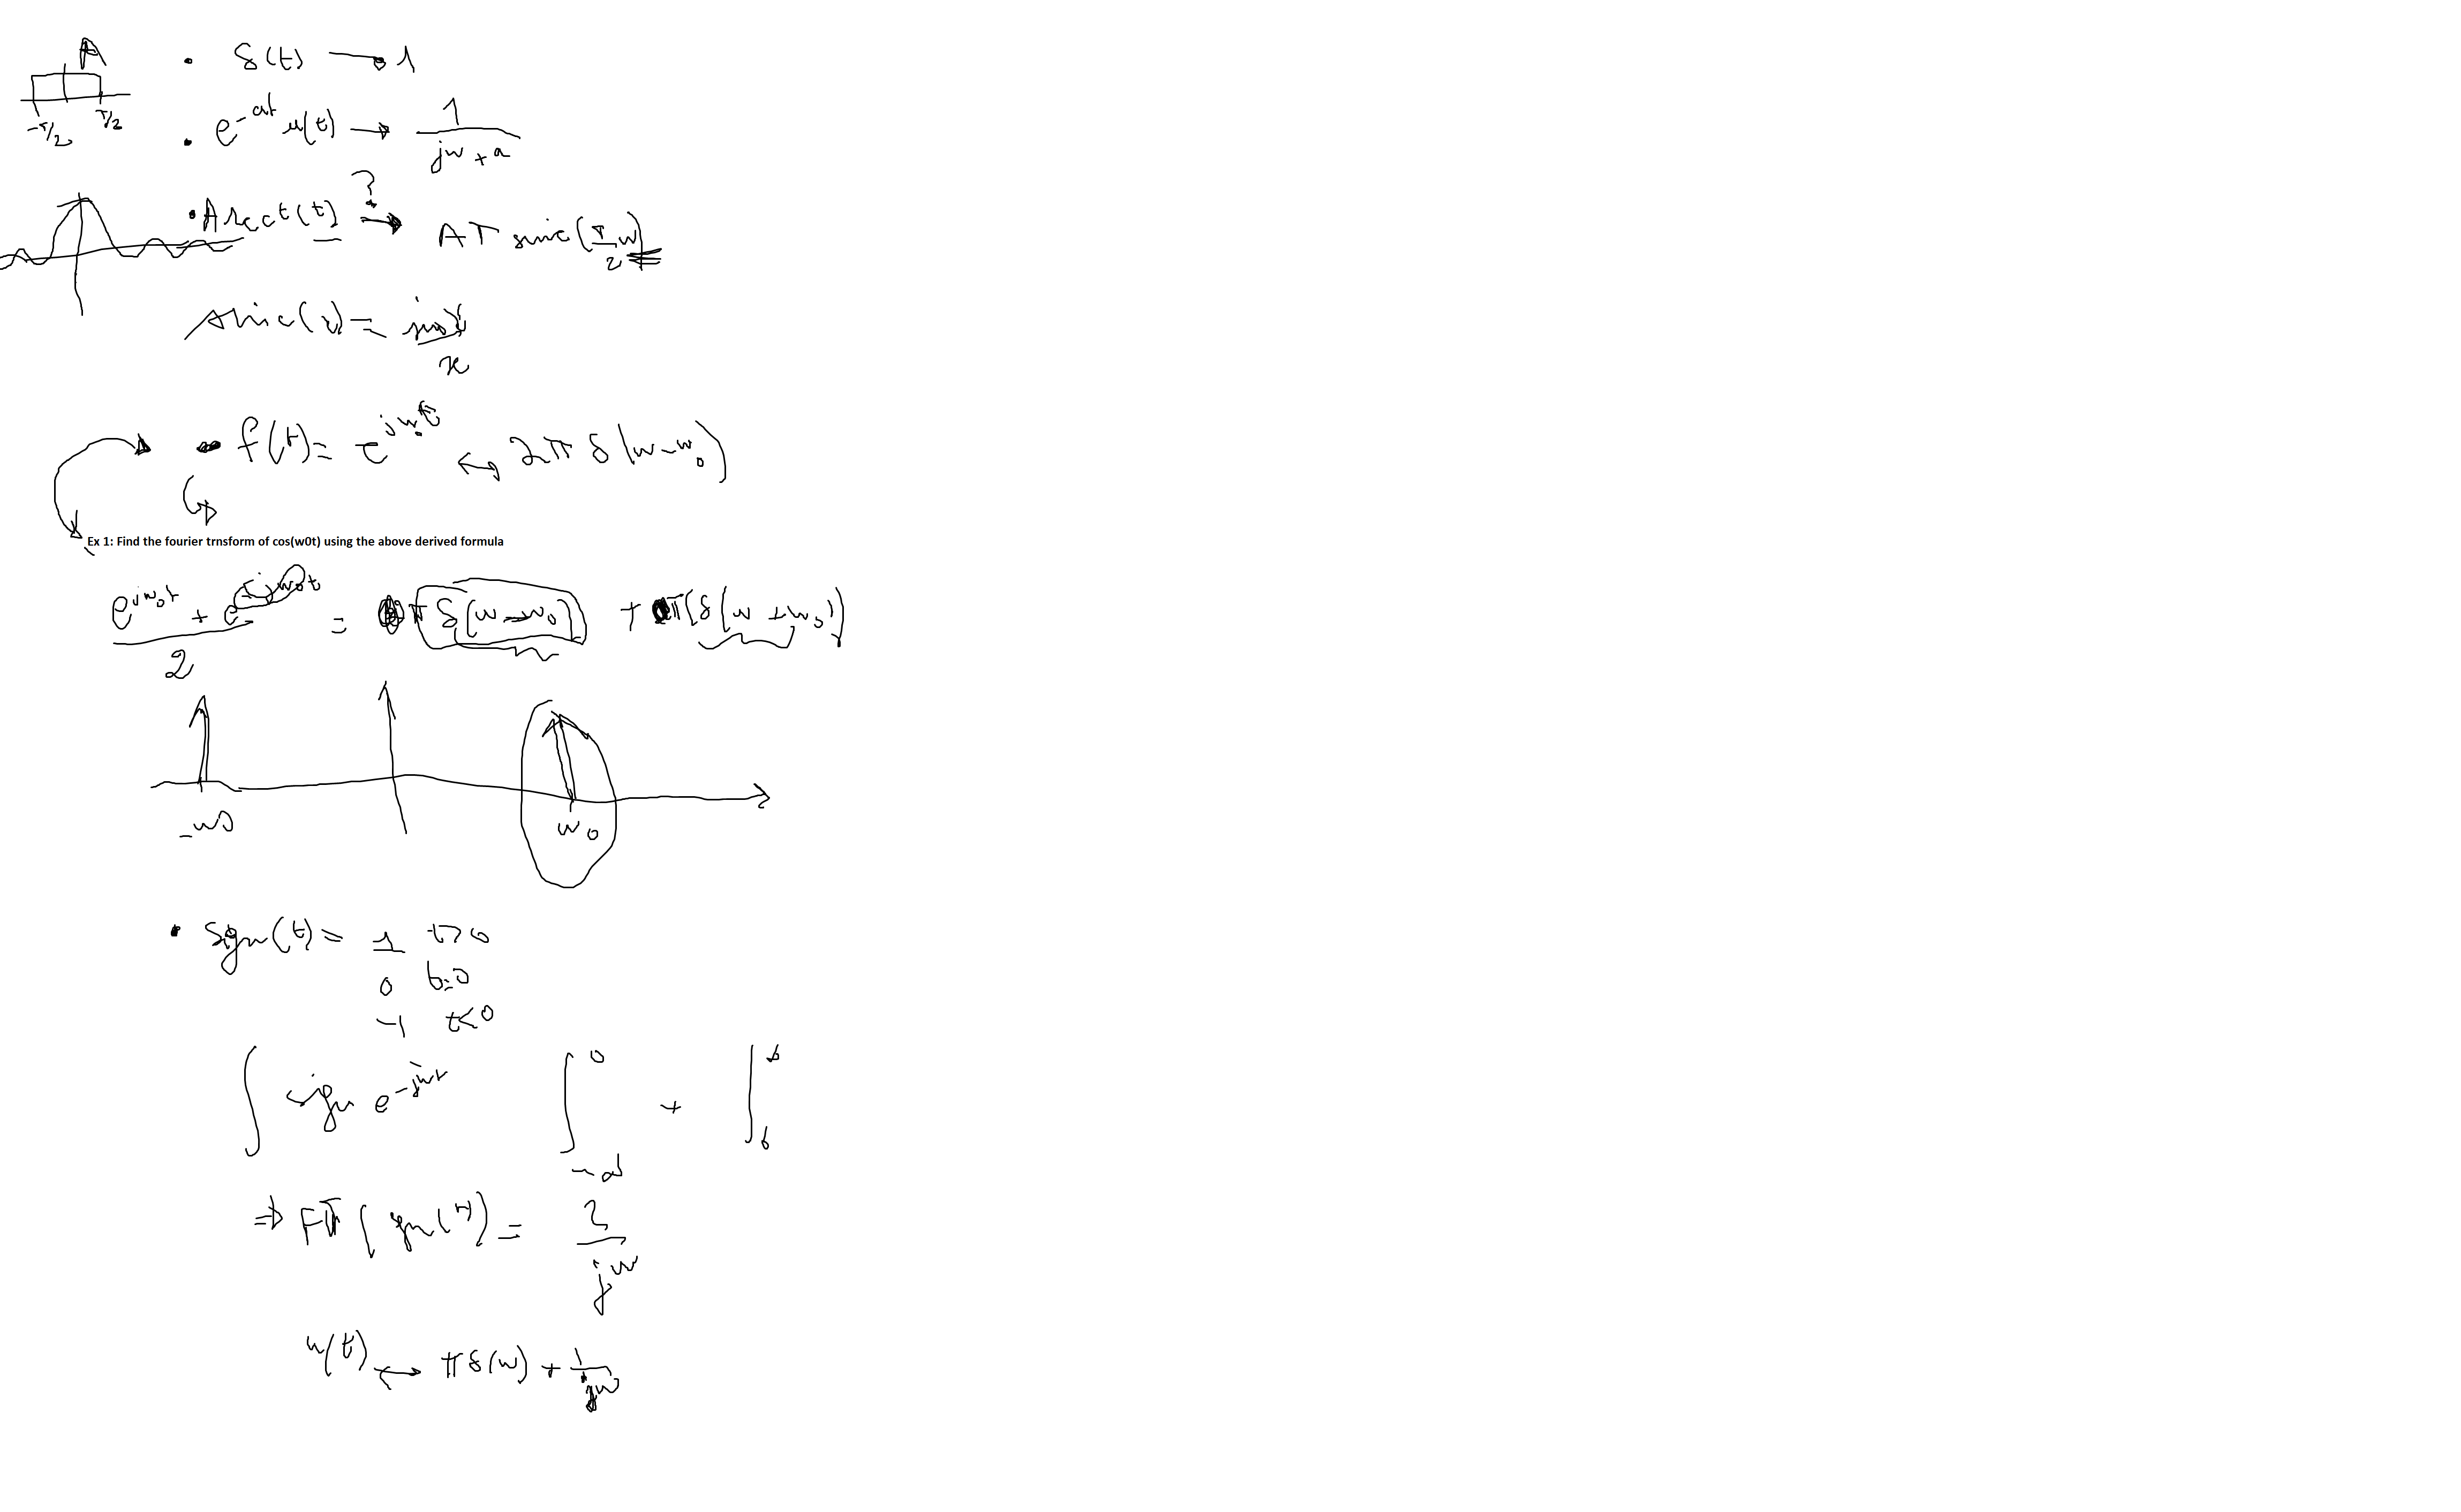 A
-T/2 T/2
• δ(t) → 1
• e^{-at} u(t) → 1/(jw + a)
• A rect(t) →? AT sinc(T/2 w)
sinc(x) = sin x / x
• f(t) = e^{jw₀t} ↔ 2π δ(w-w₀)
Ex 1: Find the fourier trnsform of cos(w0t) using the above derived formula
(e^{jw₀t} + e^{-jw₀t})/2 = π δ(w-w₀) + π(δ(w+w₀))
-w0 w₀
• sgn(t) = 1 t>0
0 t=0
-1 t<0
∫ sgn e^{-jwt} ∫_{-∞}^{0} + ∫_{0}^{∞}
⇒ FT(sgn(t)) = 2/jw
u(t) ↔ πδ(w) + 1/jw